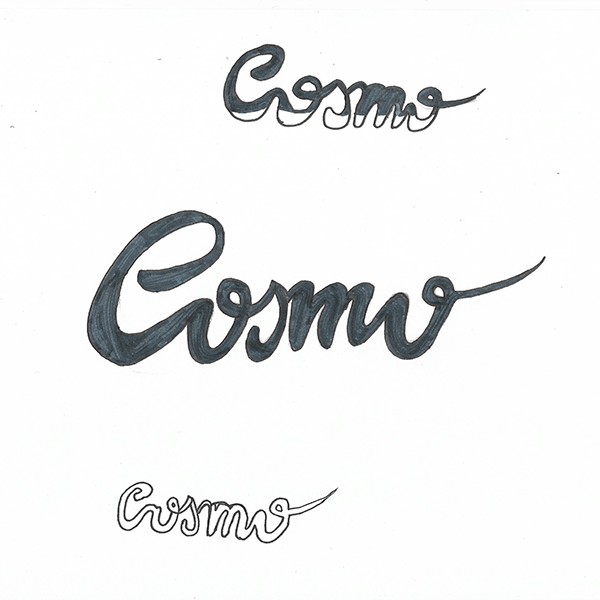 Cosmo
Cosmo
Cosmo